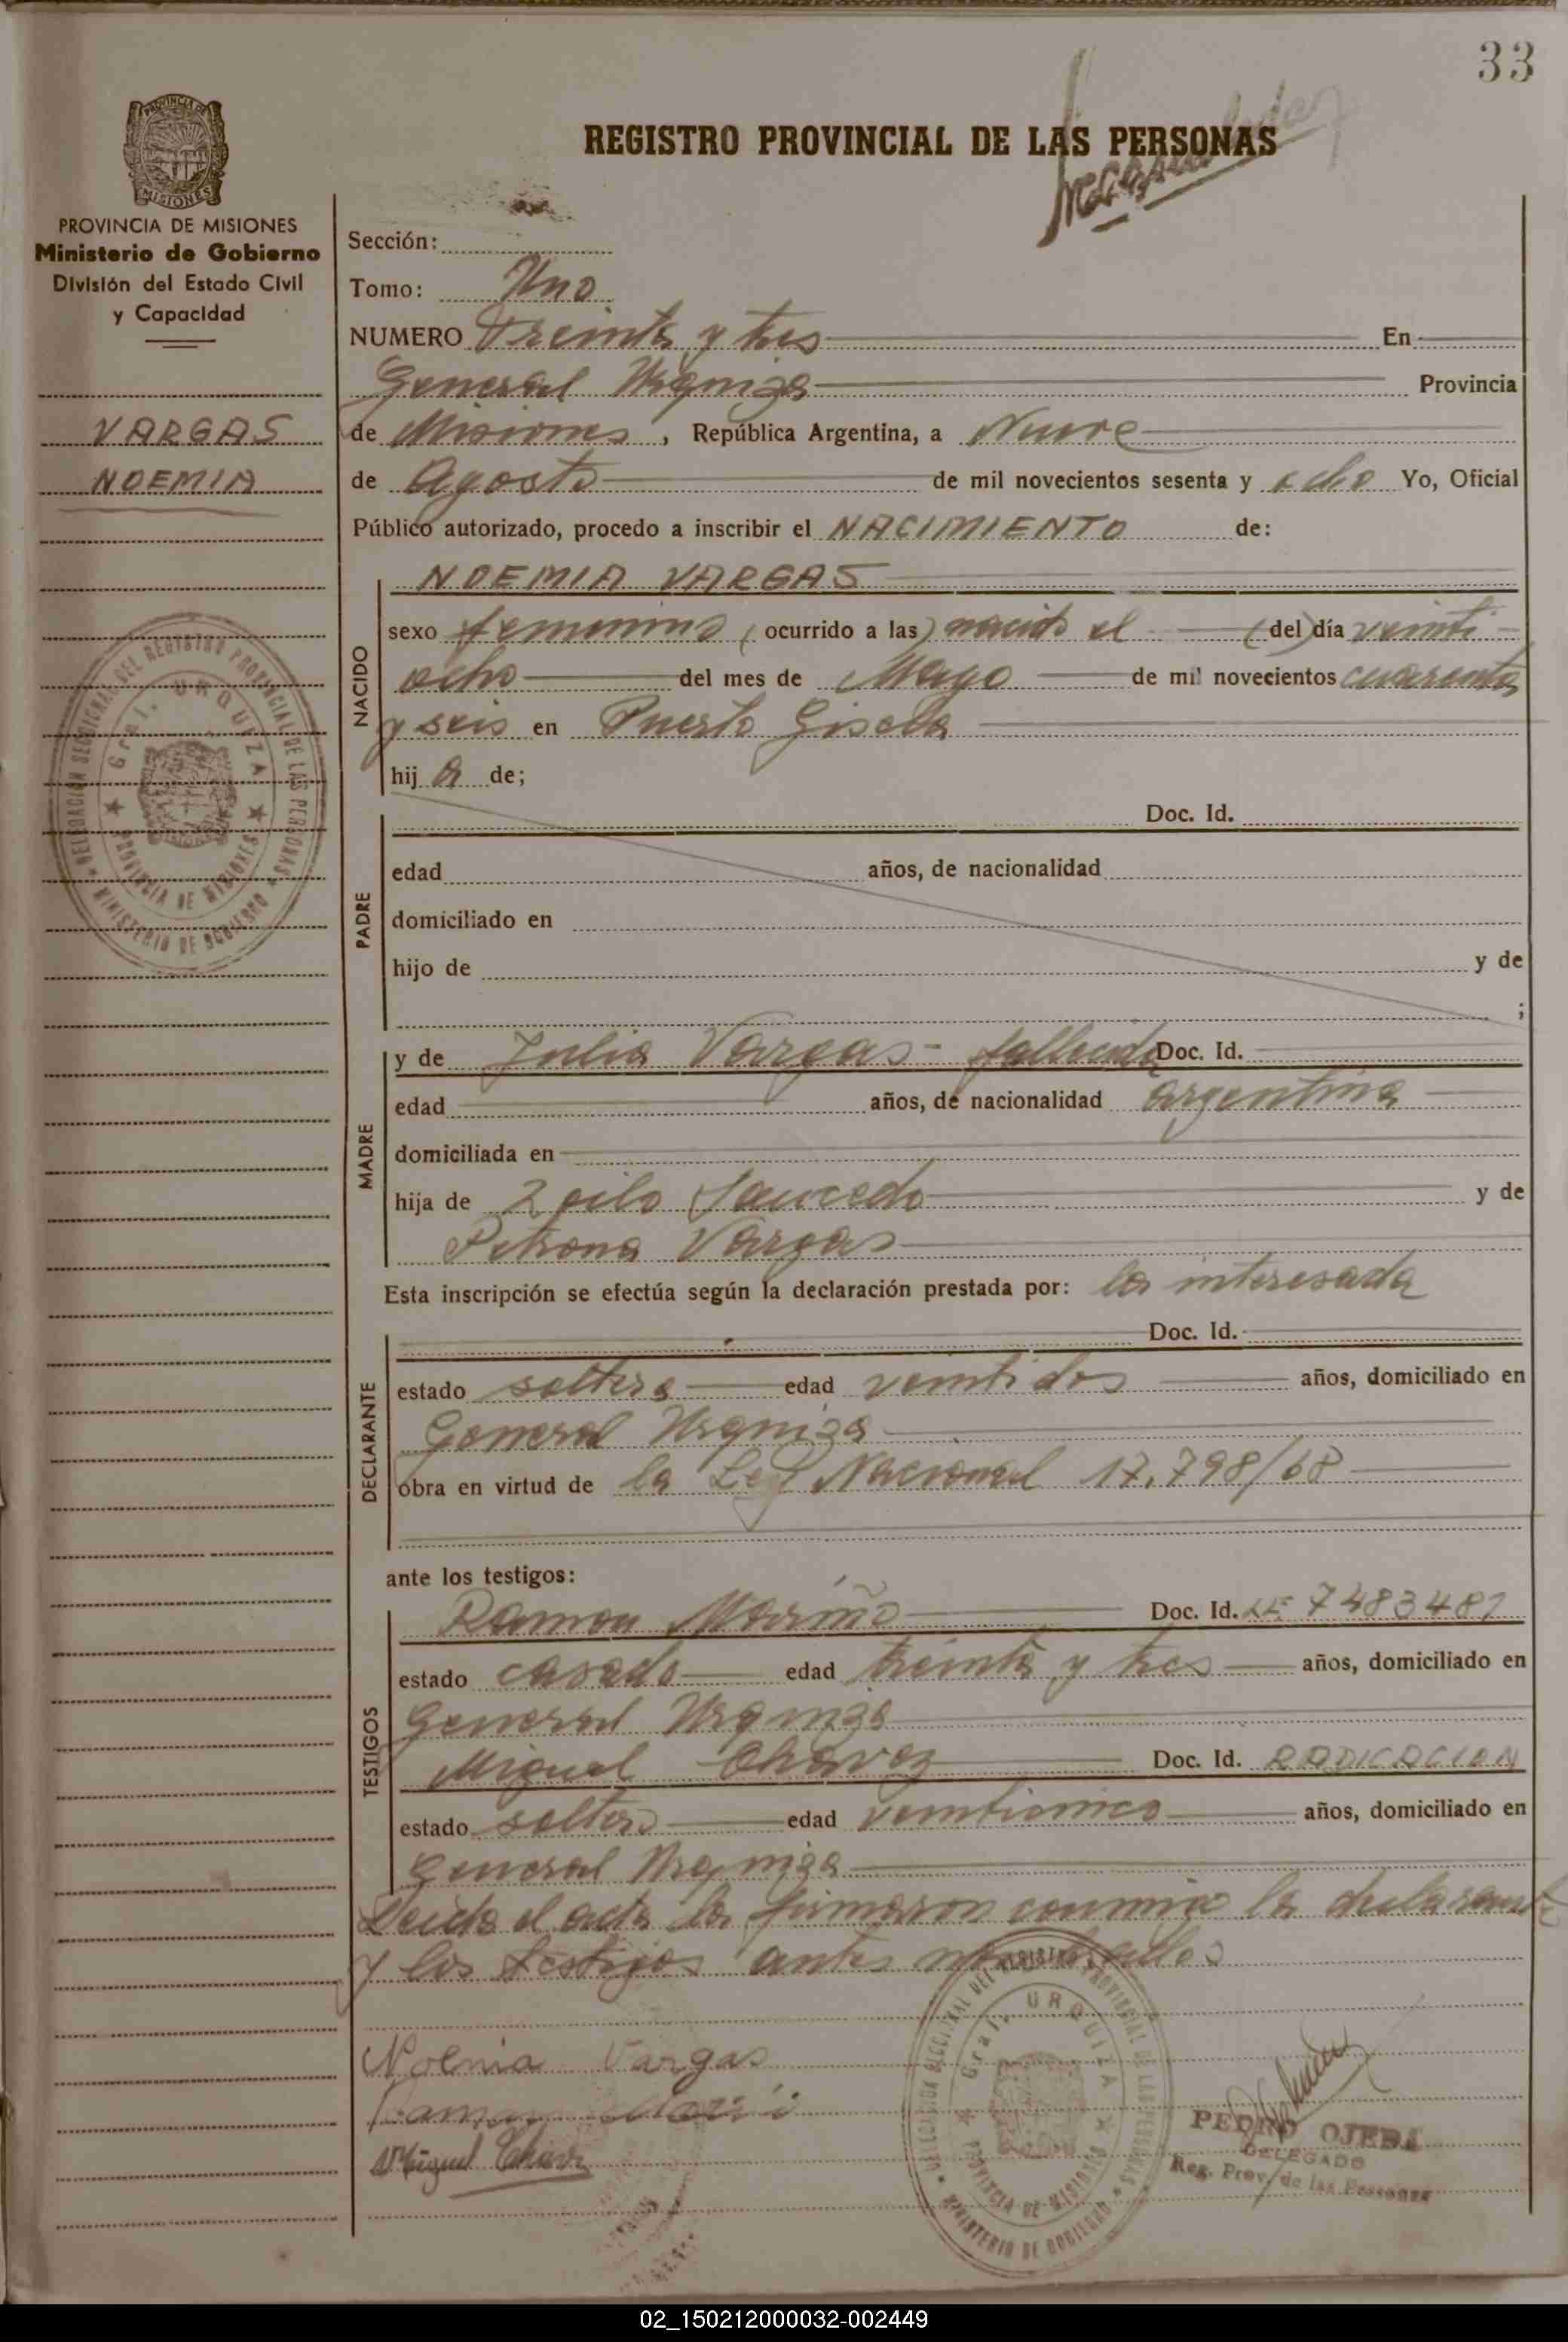 33
REGISTRO PROVINCIAL DE LAS PERSONAS
PROVINCIA DE MISIONES
Ministerio de Gobierno
División del Estado Civil
y Capacidad
VARGAS
NOEMIA
Sección:
Tomo: Uno
NUMERO Treinta y tres En
General Urquiza Provincia
de Misiones, República Argentina, a Nueve
de Agosto de mil novecientos sesenta y ocho Yo, Oficial
Público autorizado, procedo a inscribir el NACIMIENTO de:
NOEMIA VARGAS
NACIDO
sexo femenino (ocurrido a las) nacida el (del) día veinti
ocho del mes de Mayo de mil novecientos cuarenta
y seis en Puerto Gisela
hij a de;
PADRE
Doc. Id.
edad años, de nacionalidad
domiciliado en
hijo de y de
;
MADRE
y de Julia Vargas - fallecida Doc. Id.
edad años, de nacionalidad argentina
domiciliada en
hija de Zoilo Saucedo y de
Petrona Vargas
Esta inscripción se efectúa según la declaración prestada por: la interesada
DECLARANTE
Doc. Id.
estado soltera edad veintidos años, domiciliado en
General Urquiza
obra en virtud de la Ley Nacional 17.798/68
ante los testigos:
TESTIGOS
Ramon Mariño Doc. Id. LE 7483487
estado casado edad treinta y tres años, domiciliado en
General Urquiza
Miguel Chavez Doc. Id. RADICACION
estado soltero edad veinticinco años, domiciliado en
General Urquiza
Leida el acta la firmaron conmigo la declarante
y los testigos antes nombrados
Noemia Vargas
Ramon
Miguel Chavez
PEDRO OJEDA
DELEGADO
Reg. Prov. de las Personas
DELEGACION SECCIONAL DEL REGISTRO PROVINCIAL DE LAS PERSONAS
Gral. URQUIZA
PROVINCIA DE MISIONES
MINISTERIO DE GOBIERNO
02_150212000032-002449